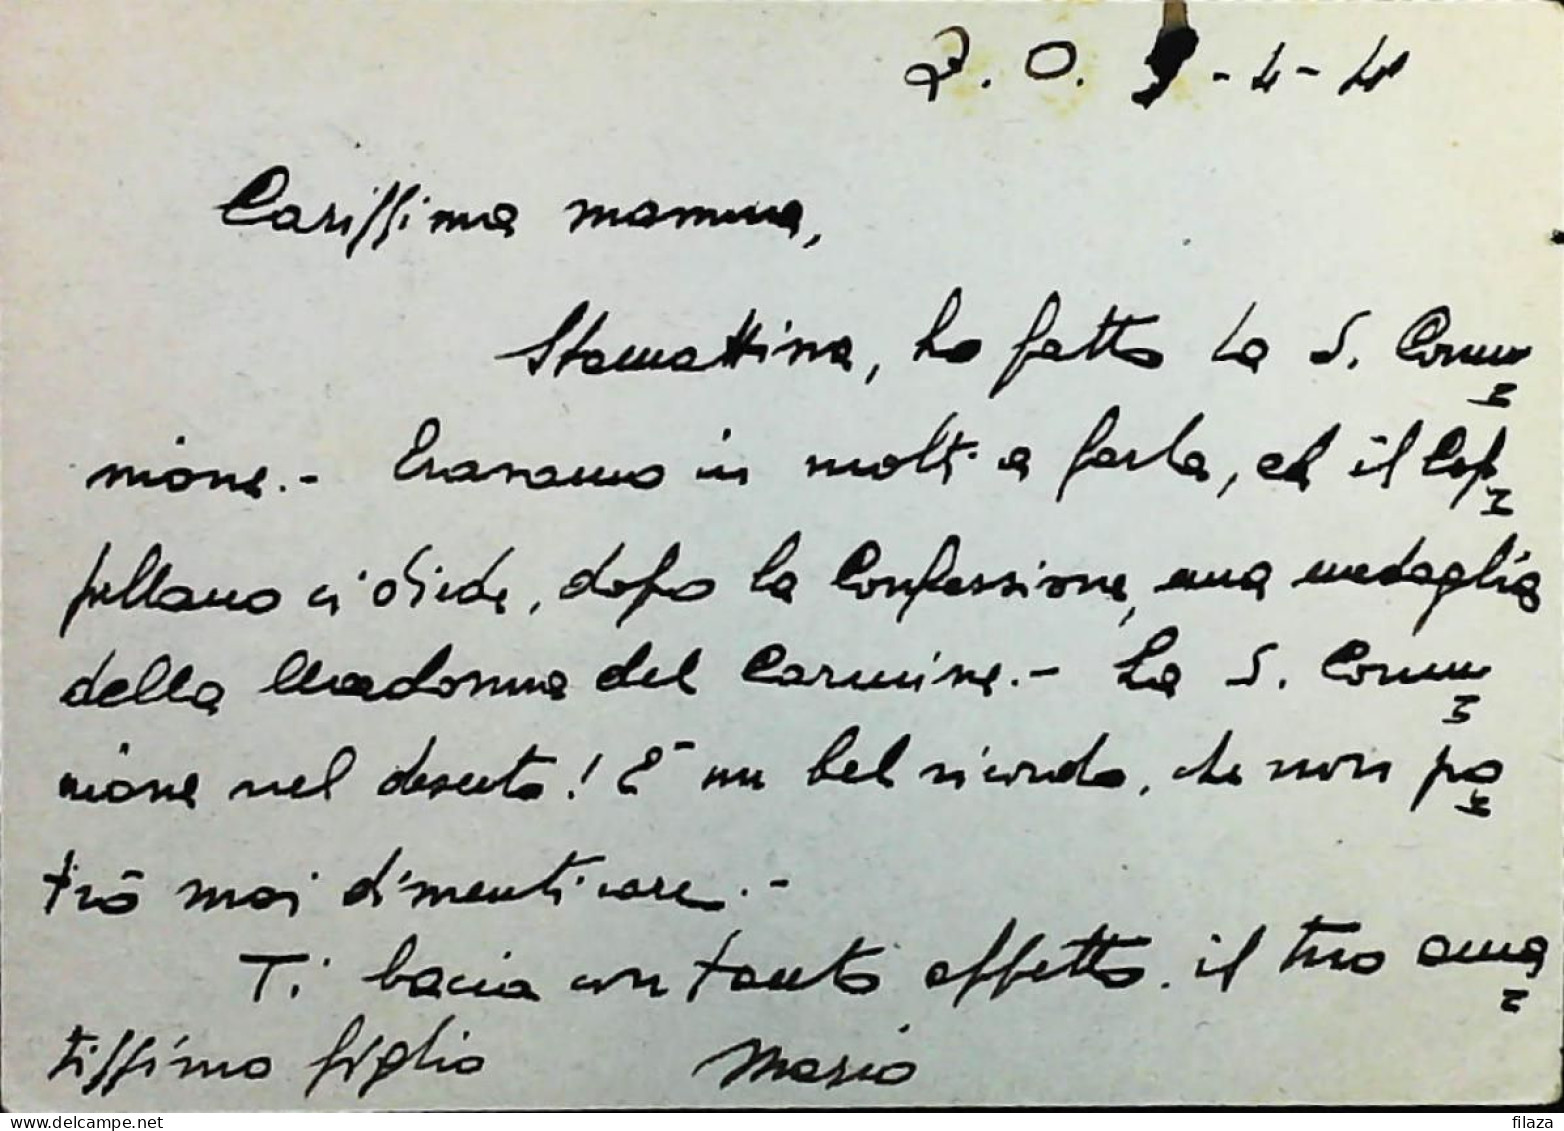 Z. O. 9-4-41
Carissima mamma,
Stamattina, ho fatto la S. Comu=
nione.- Eravamo in molti a farla, ed il Cap=
pellano ci diede, dopo la Confessione, una medaglia
della Madonna del Carmine.- La S. Comu=
nione nel deserto! È un bel ricordo, che non po=
trò mai dimenticare.-
Ti bacia con tanto affetto. il tuo ama=
tissimo figlio Mario
filaza